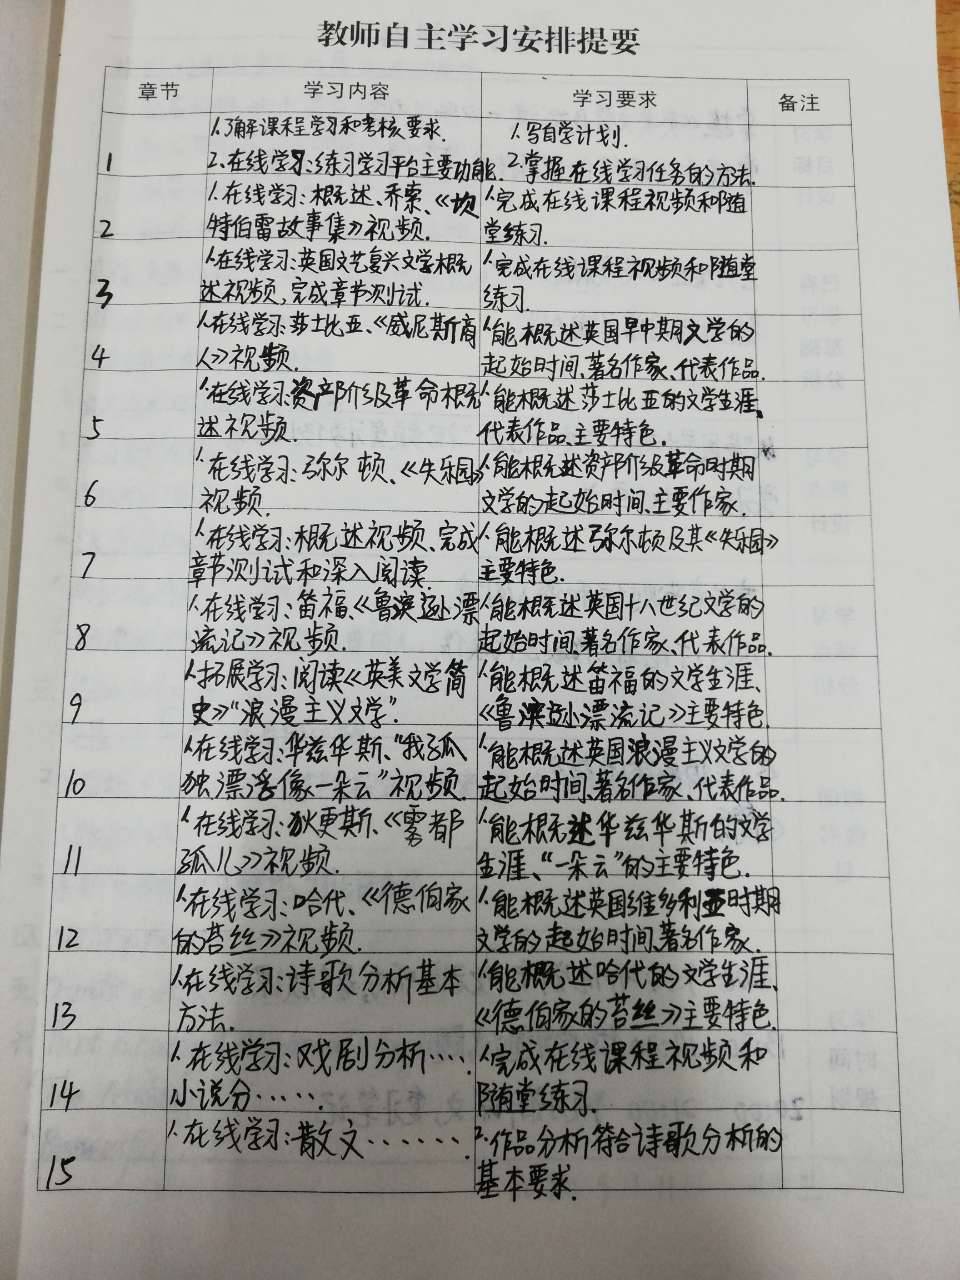 教师自主学习安排提要
章节 学习内容 学习要求 备注
1.了解课程学习和考核要求. 1.写自学计划.
1 2.在线学习:练习学习平台主要功能. 2.掌握在线学习任务的方法.
1.在线学习:概述、乔索、《坎 1.完成在线课程视频和随
2 特伯雷故事集》视频. 堂练习.
1.在线学习:英国文艺复兴文学概 1.完成在线课程视频和随堂
3 述视频,完成章节测试. 练习.
1.在线学习:莎士比亚、《威尼斯商 1.能概述英国早中期文学的
4 人》视频. 起始时间、著名作家、代表作品.
1.在线学习:资产阶级革命概 1.能概述莎士比亚的文学生涯、
5 述视频. 代表作品、主要特色.
1.在线学习:弥尔顿、《失乐园》 1.能概述资产阶级革命时期
6 视频. 文学的起始时间、主要作家.
1.在线学习:概述视频、完成 1.能概述弥尔顿及其《失乐园》
7 章节测试和深入阅读. 主要特色.
1.在线学习:笛福、《鲁滨逊漂 1.能概述英国十八世纪文学的
8 流记》视频. 起始时间、著名作家、代表作品.
1.拓展学习:阅读《英美文学简 1.能概述笛福的文学生涯、
9 史》“浪漫主义文学”. 《鲁滨逊漂流记》主要特色.
1.在线学习:华兹华斯、“我孤 1.能概述英国浪漫主义文学的
10 独漂浮像一朵云”视频. 起始时间、著名作家、代表作品.
1.在线学习:狄更斯、《雾都 1.能概述华兹华斯的文学
11 孤儿》视频. 生涯、“一朵云”的主要特色.
1.在线学习:哈代、《德伯家 1.能概述英国维多利亚时期
12 的苔丝》视频. 文学的起始时间、著名作家.
1.在线学习:诗歌分析基本 1.能概述哈代的文学生涯、
13 方法. 《德伯家的苔丝》主要特色.
1.在线学习:戏剧分析…… 1.完成在线课程视频和
14 小说分……. 随堂练习.
1.在线学习:散文……. 2.作品分析符合诗歌分析的
15 基本要求.